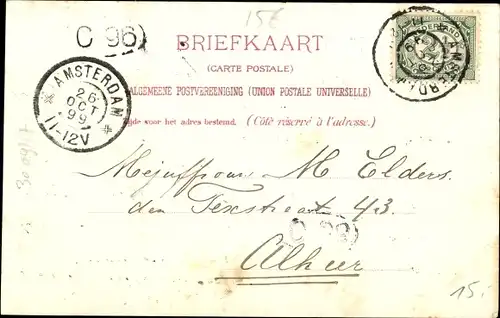 15€
C 96)
BRIEFKAART
(CARTE POSTALE)
ALGEMEENE POSTVEREENIGING (UNION POSTALE UNIVERSELLE)
jde voor het adres bestemd. (Côté réservé à l'adresse.)
NEDERLAND
AMSTERDAM
26
OCT
99
11-12V
Mejuffrouw M Elders.
den Texstraat 43.
Alhier
15.-